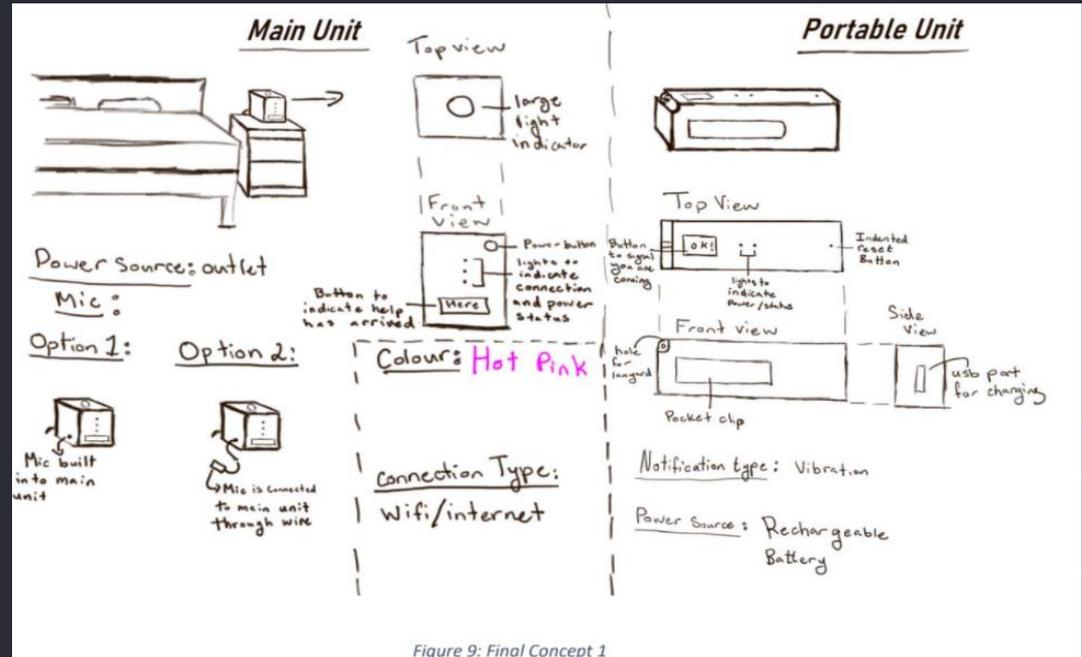 Main Unit
Top view
large
light
indicator
Front
View
Power button
lights to
indicate
connection
and power
status
Button to
indicate help
has arrived
Here
Power Source: outlet
Mic:
Option 1:
Option 2:
Mic built
into main
unit
Mic is connected
to main unit
through wire
Colour: Hot Pink
Connection Type:
Wifi/internet
Portable Unit
Top View
Button
to signal
you are
coming
OK!
lights to
indicate
Power/status
Indented
reset
Button
Front view
hole
for
lanyard
Pocket clip
Side
View
usb port
for charging
Notification type: Vibration
Power Source: Rechargeable
Battery
Figure 9: Final Concept 1